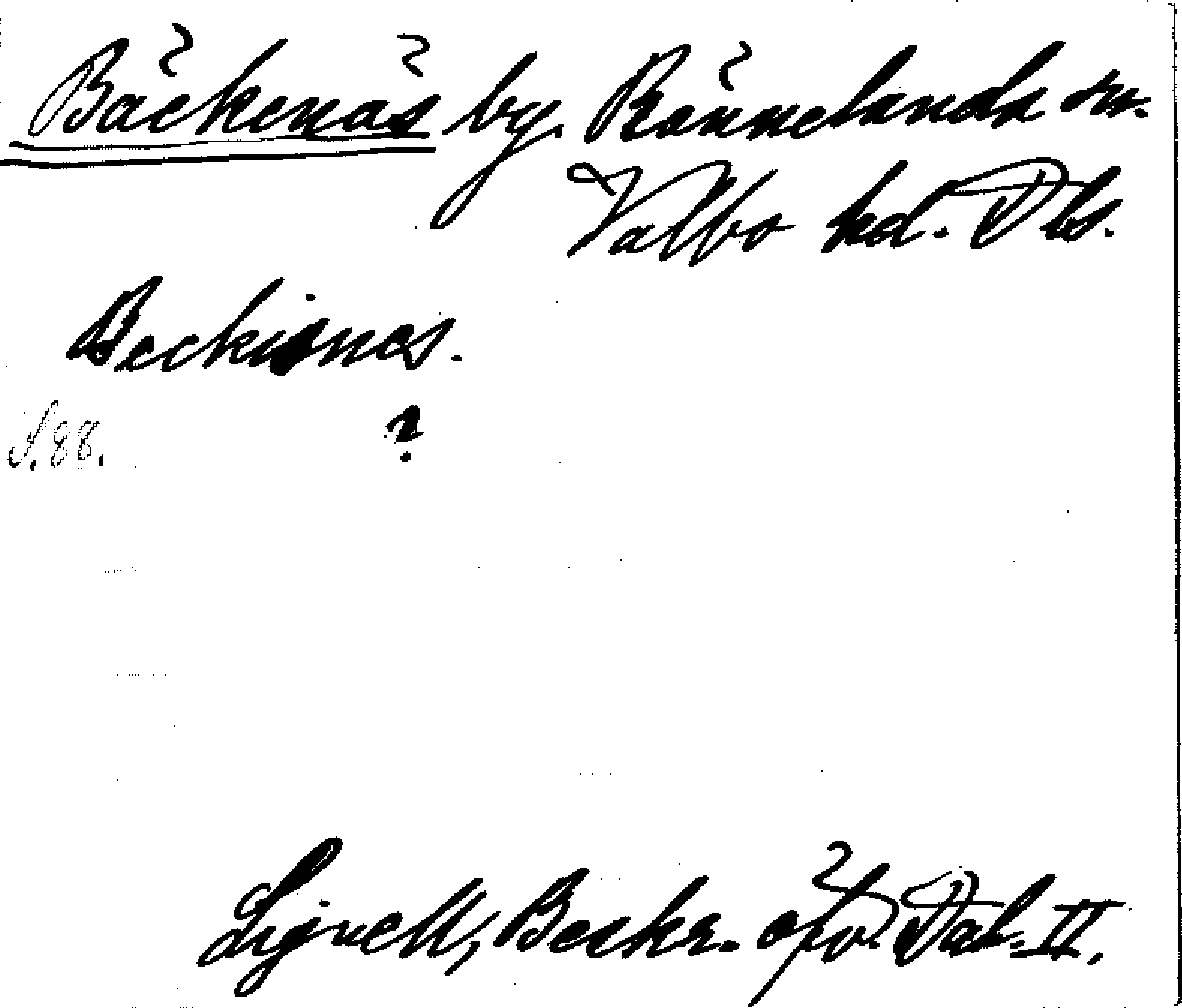 Bäckenäs by. Rännelanda sn.
Valbo hd. Dls.
Beckisnes.
S. 88. ?
Lignell, Beskr. öfv. Dal. II.